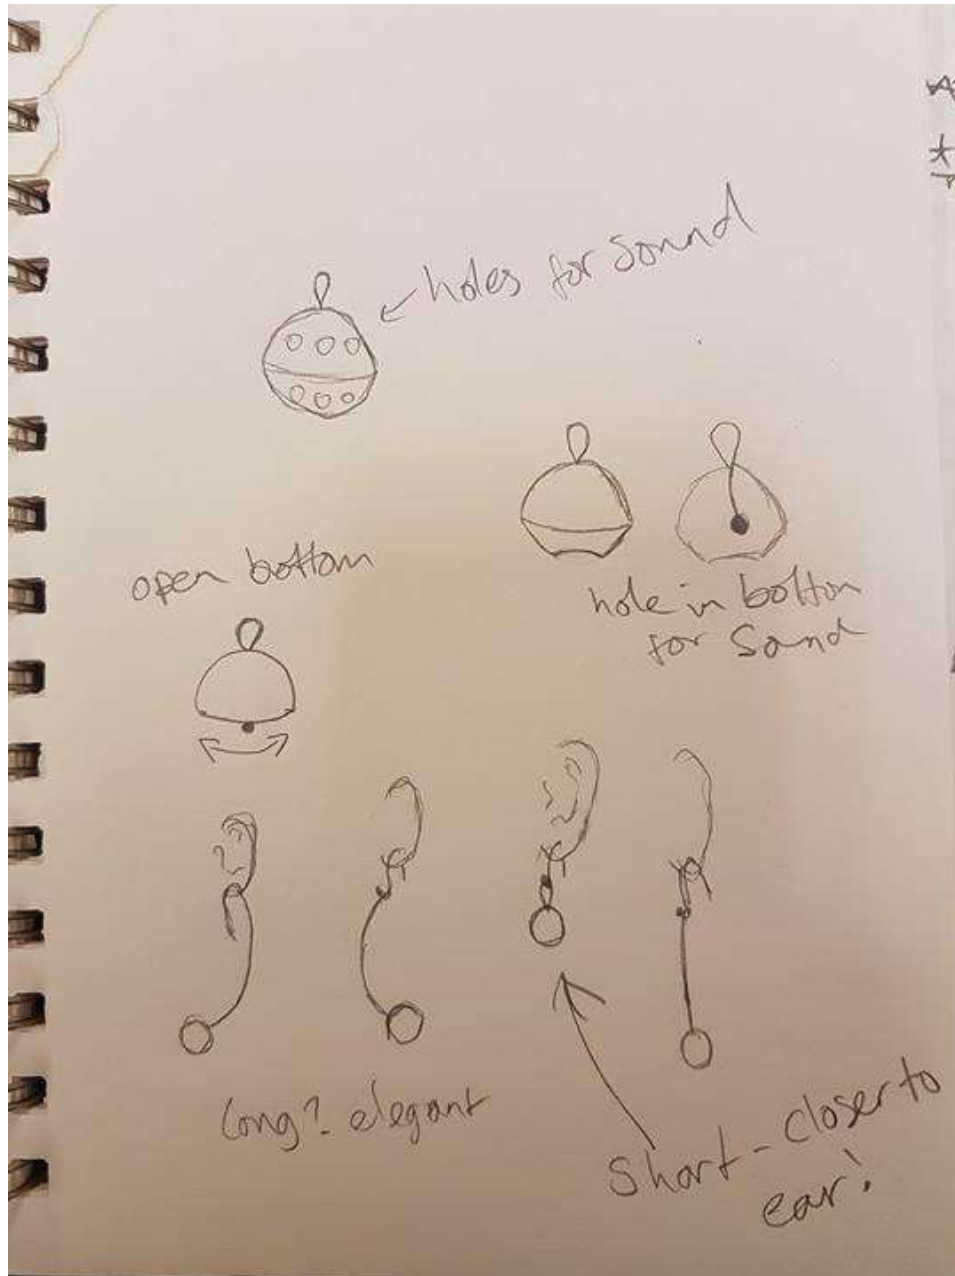 holes for sound
open bottom
hole in bottom
for sound
long? elegant
Short - closer to
ear!